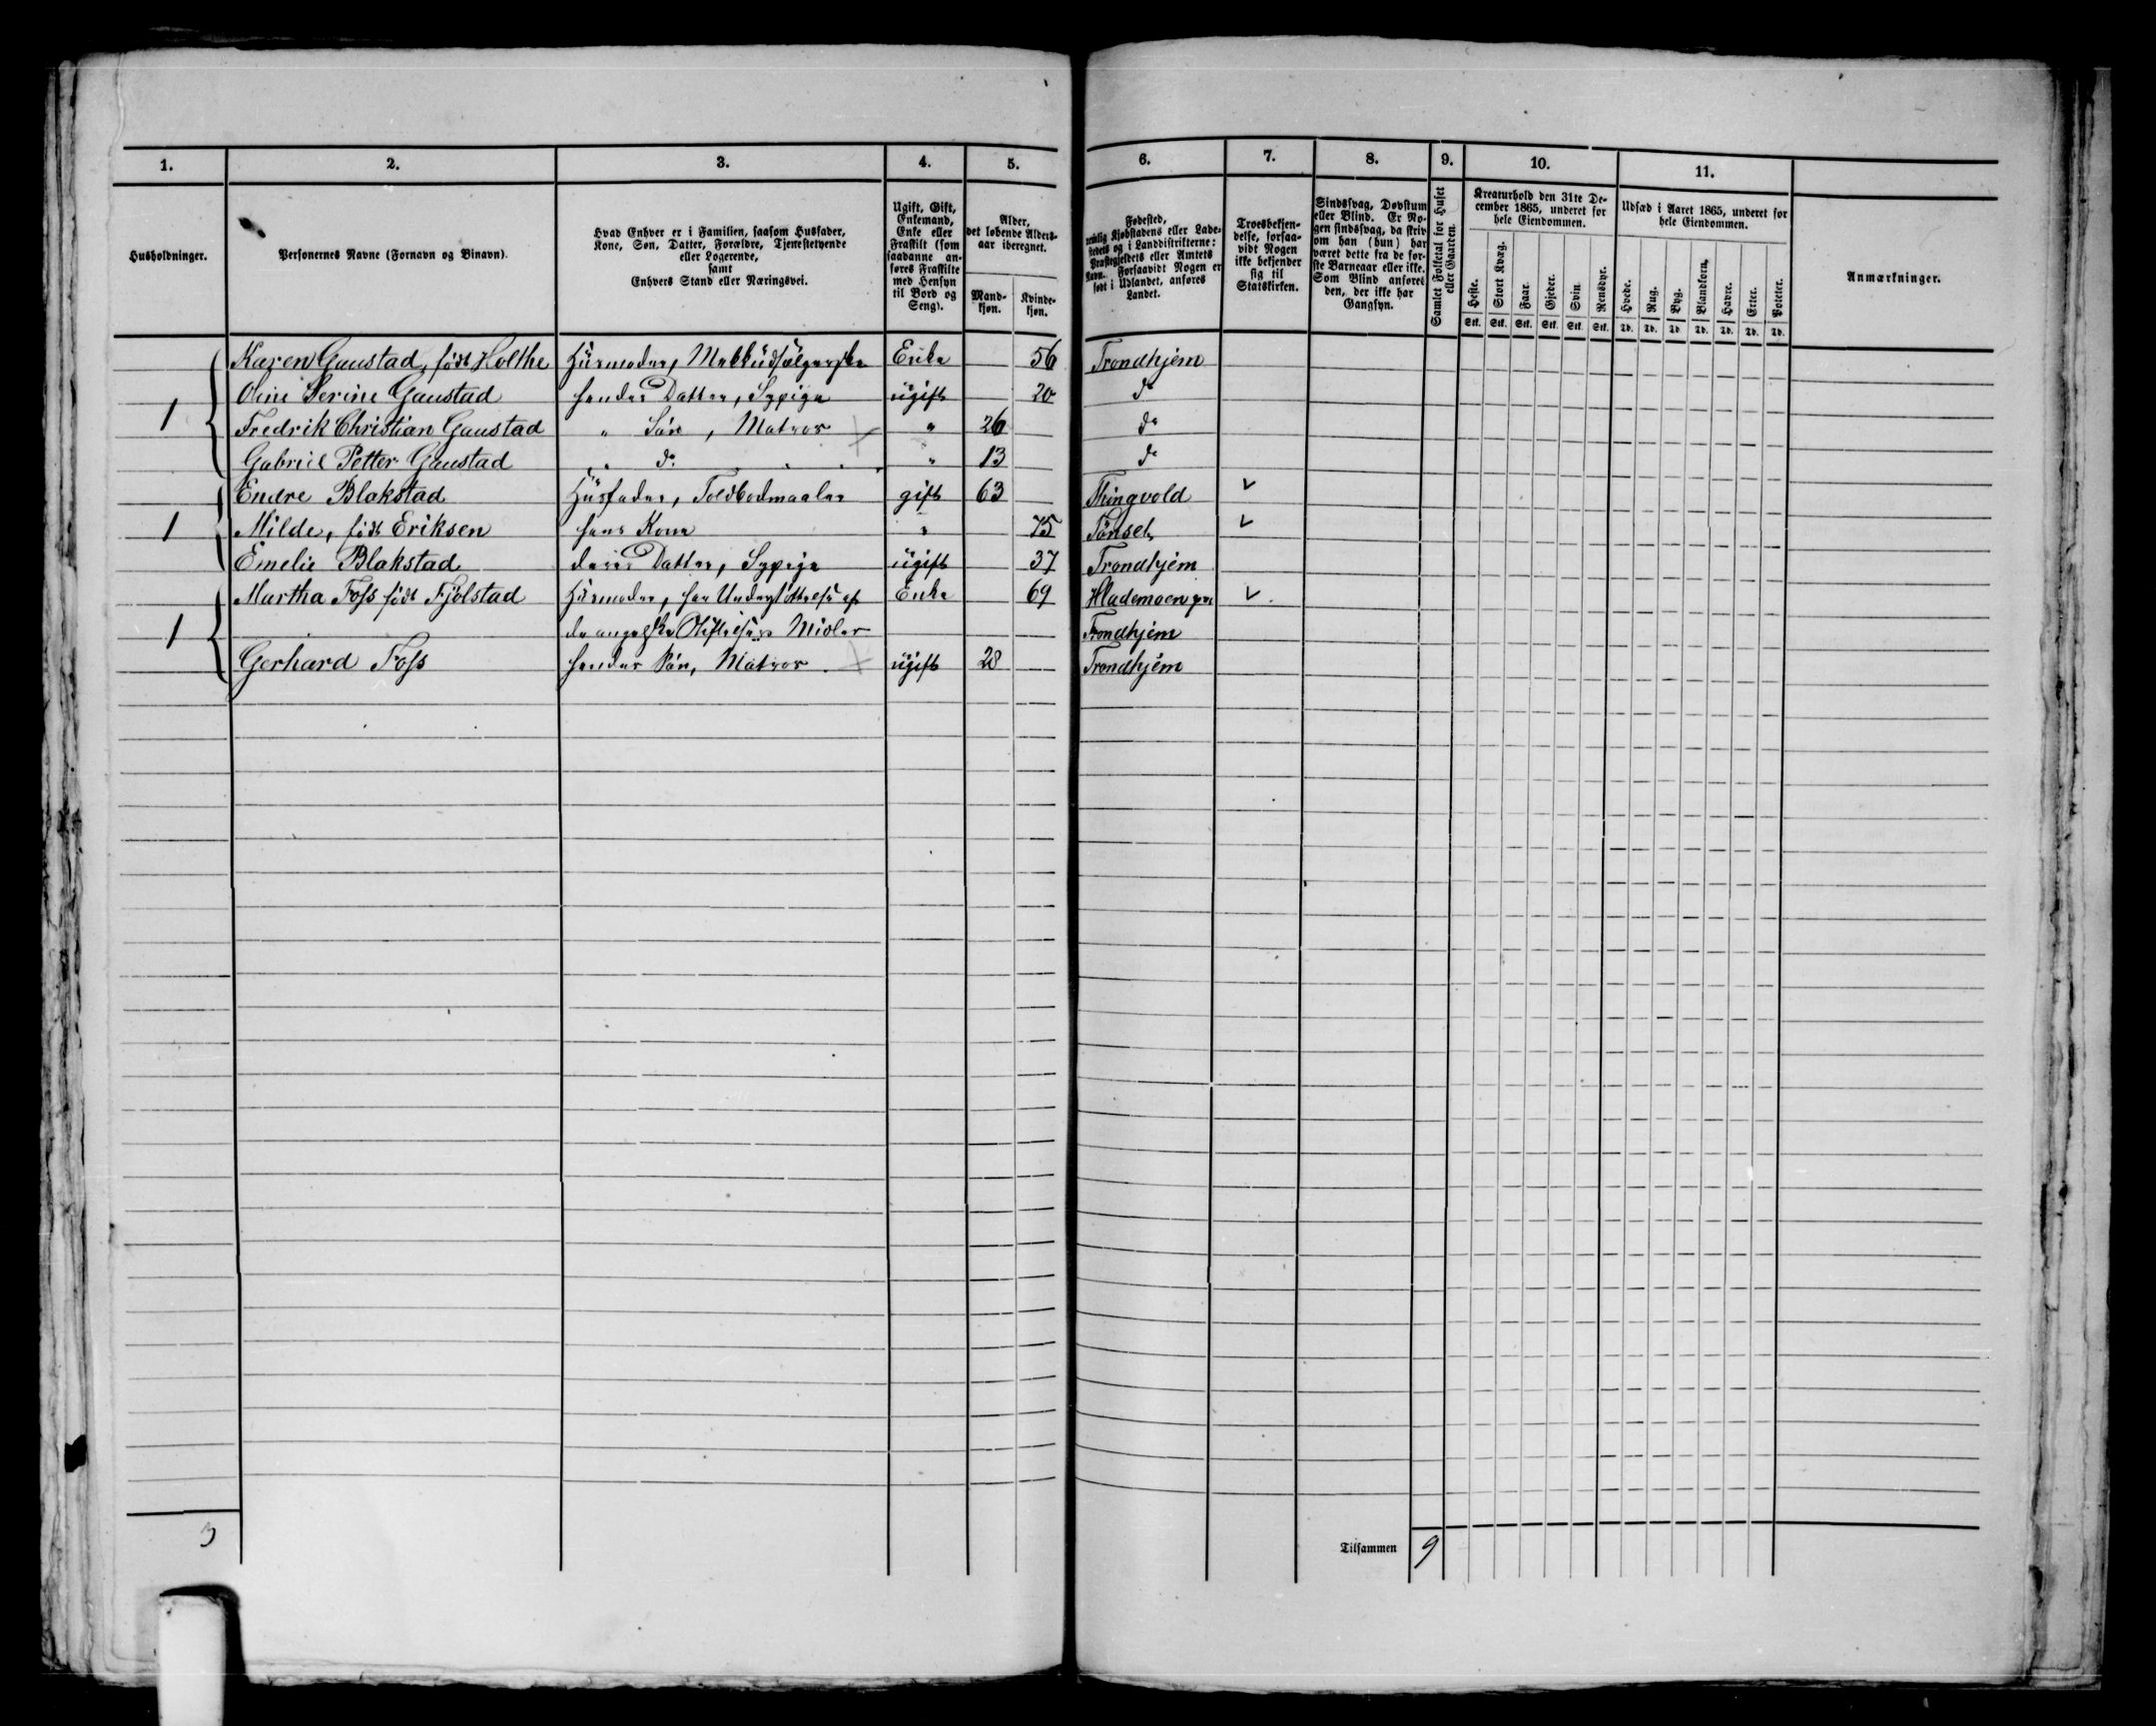 1. 2. 3. 4. 5. 6. 7. 8. 9. 10. 11.
Husholdninger.
Personernes Navne (Fornavn og Binavn).
Hvad Enhver er i Familien, saasom Husfader,
Kone, Søn, Datter, Forældre, Tjenestetyende
eller Logerende,
samt
Enhvers Stand eller Næringsvei.
Ugift, Gift,
Enkemand,
Enke eller
Fraskilt (som
saadanne an-
føres Fraskilte
med Hensyn
til Bord og
Seng).
Alder,
det løbende Alders-
aar iberegnet.
Mand-
kjøn.
Kvinde-
kjøn.
Fødested,
nemlig Kjøbstadens eller Lade-
stedets og i Landdistrikterne:
Præstegjeldets eller Amtets
Navn. Forsaavidt Nogen er
født i Udlandet, anføres
Landet.
Troesbekjen-
delse, forsaa-
vidt Nogen
ikke bekjender
sig til
Statskirken.
Sindssvag, Døvstum
eller Blind. Er No-
gen sindssvag, da skriv
om han (hun) har
været dette fra de før-
ste Barneaar eller ikke.
Som Blind anføres
den, der ikke har
Gangsyn.
Samlet Folketal for Huset
eller Gaarden.
Kreaturhold den 31te De-
cember 1865, underet for
hele Eiendommen.
Heste. Stort Kvæg. Faar. Gjeder. Svin. Rensdyr.
Stk. Stk. Stk. Stk. Stk. Stk.
Udsæd i Aaret 1865, underet for
hele Eiendommen.
Hvede. Rug. Byg. Blandkorn. Havre. Erter. Poteter.
Td. Td. Td Td. Td. Td. Td.
Anmærkninger.
Karen Gaustad, født Holthe Huusmoder, Melkudsælgerske Enke 56 Trondhjem
Oline Serine Gaustad hendes Datter, Sypige ugift 20 do
1 Fredrik Christian Gaustad " Søn, Matros " 26 do
Gabriel Petter Gaustad " do " 13 do
Endre Blakstad Husfader, Toldbodmaaler gift 63 Thingvold
1 Milde, født Eriksen hans Kone " 75 Tönset
Emelie Blakstad deres Datter, Sypige ugift 37 Trondhjem
Martha Foss født Fjolstad Husmoder, har Understöttelse af Enke 69 Hlademoen pr
1 de angelske Stiftelsers Midler Trondhjem
Gerhard Foss hendes Søn, Matros ugift 28 Trondhjem
3
Tilsammen 9